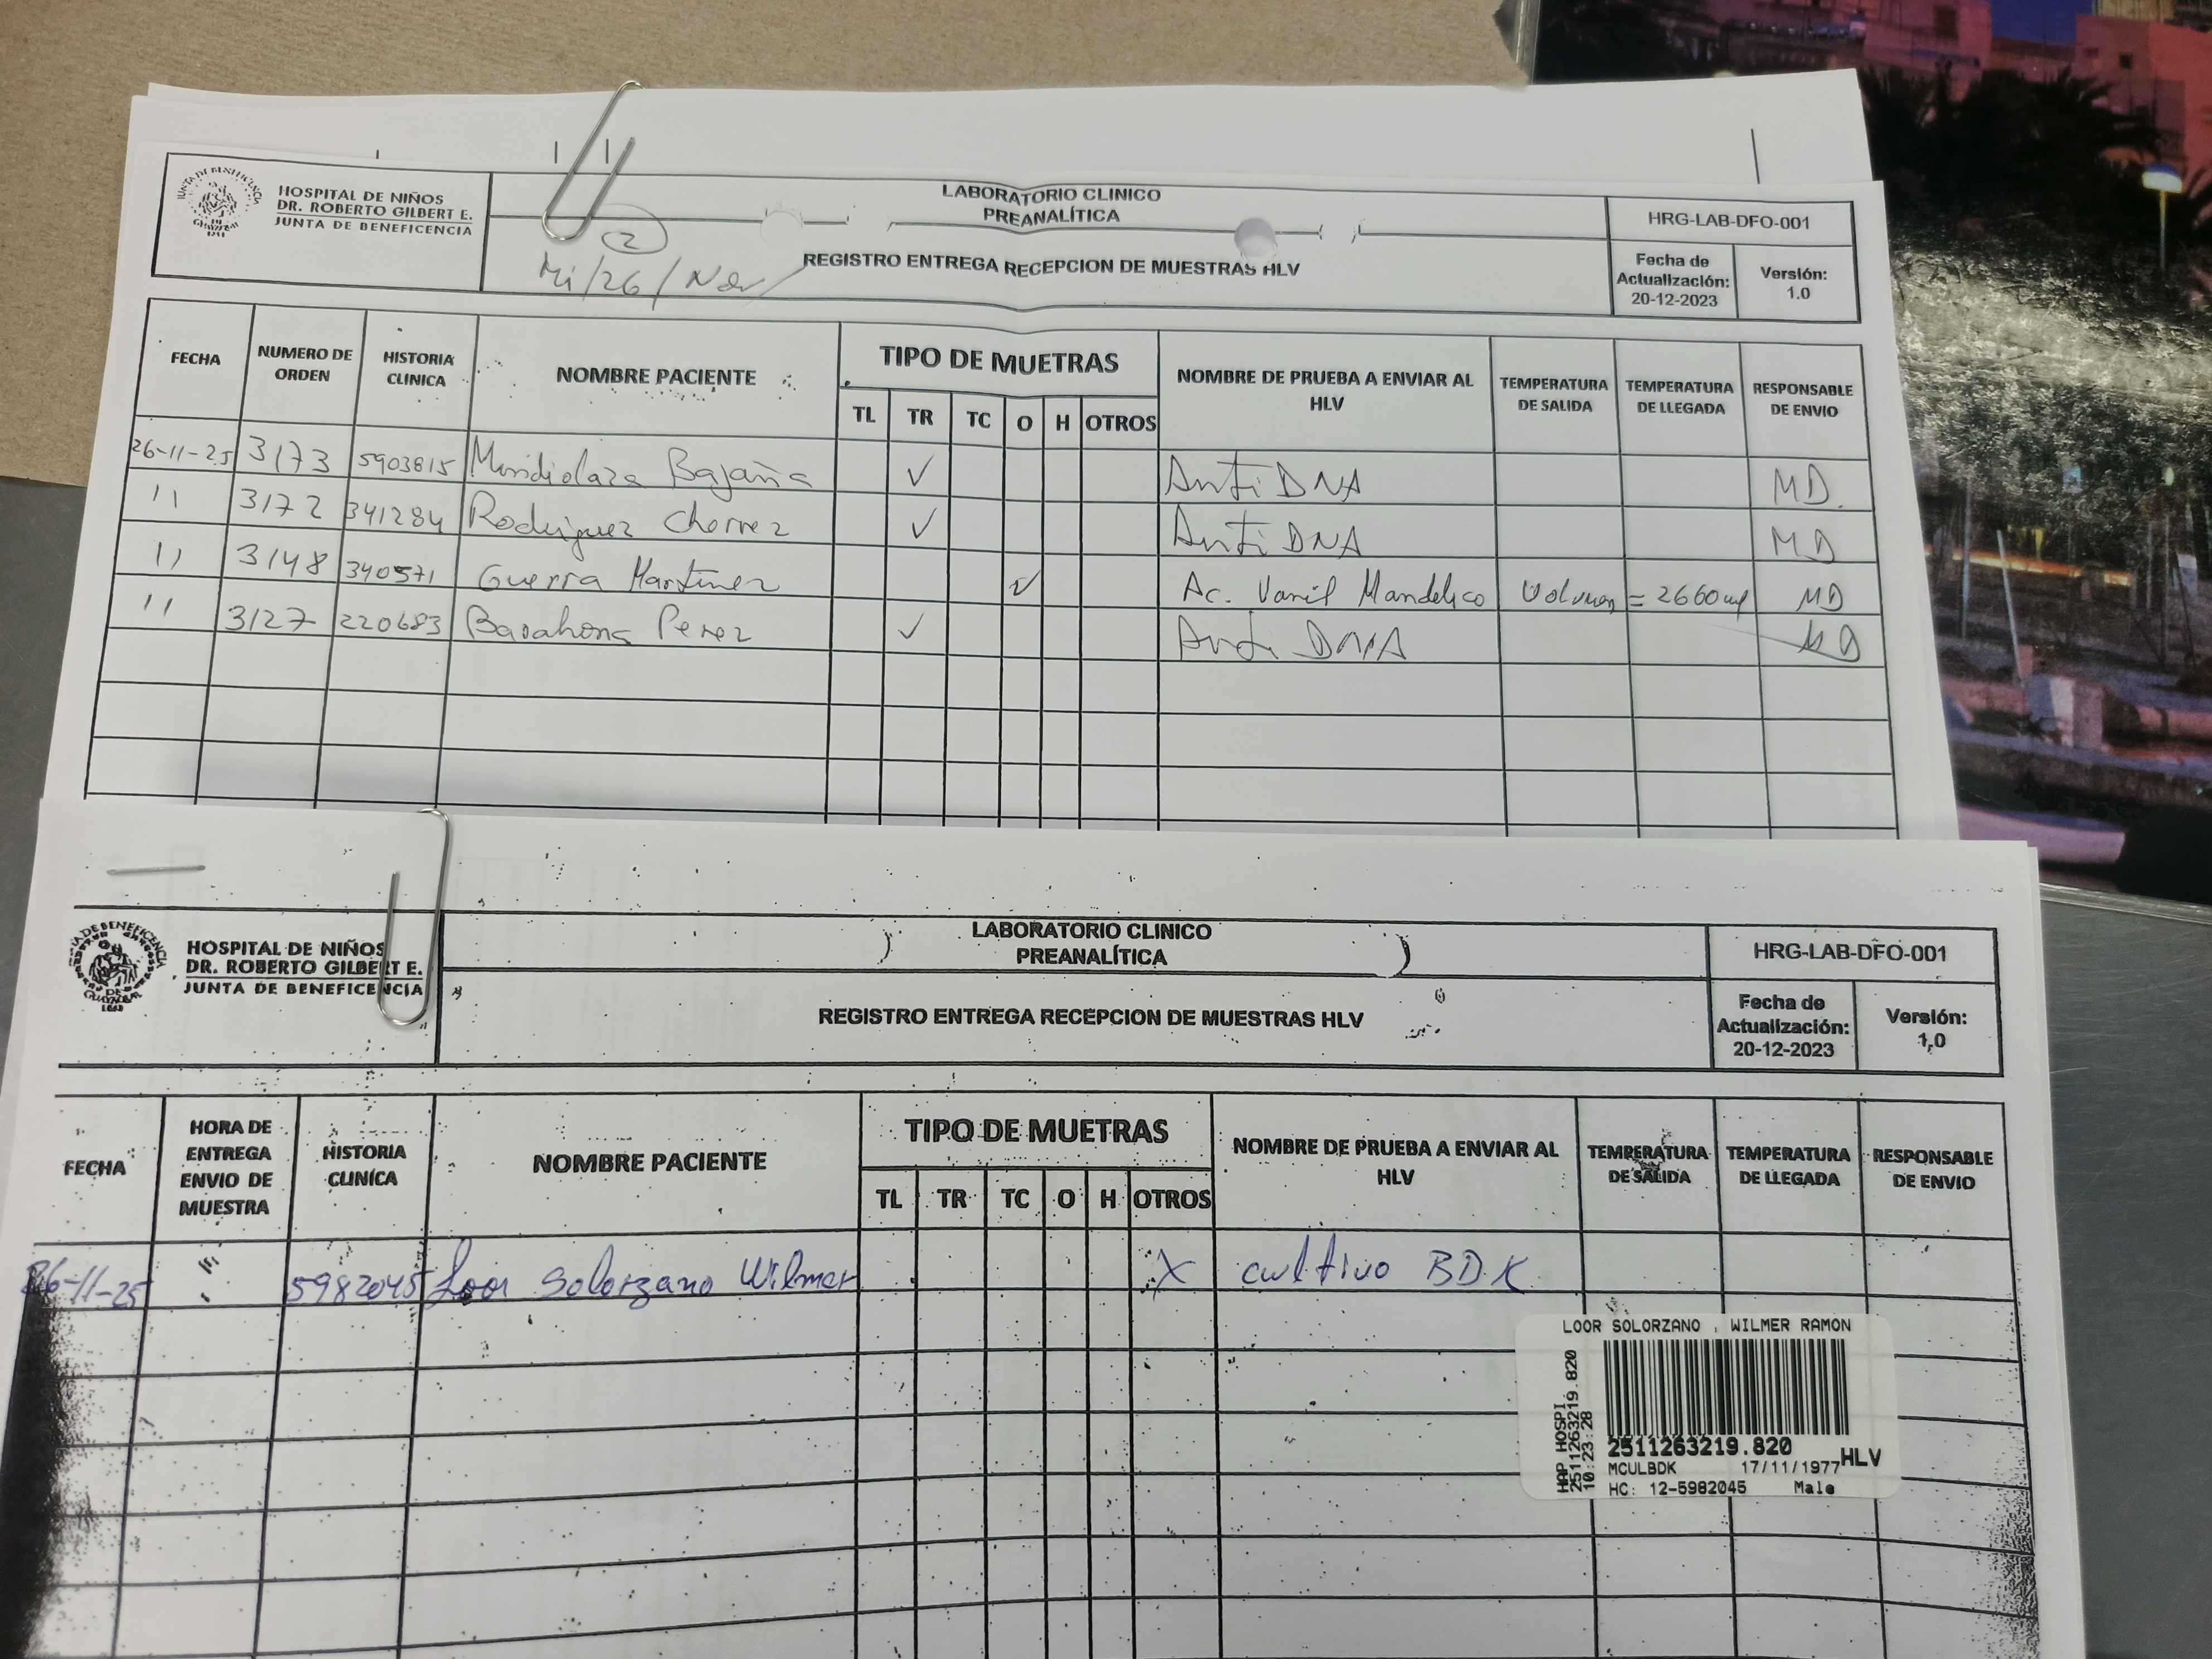 HOSPITAL DE NIÑOS
DR. ROBERTO GILBERT E.
JUNTA DE BENEFICENCIA
LABORATORIO CLINICO
PREANALÍTICA
2
Mi/26/Nov/
REGISTRO ENTREGA RECEPCION DE MUESTRAS HLV
HRG-LAB-DFO-001
Fecha de
Actualización:
20-12-2023
Versión:
1.0
FECHA
NUMERO DE
ORDEN
HISTORIA
CLINICA
NOMBRE PACIENTE
TIPO DE MUETRAS
TL TR TC O H OTROS
NOMBRE DE PRUEBA A ENVIAR AL
HLV
TEMPERATURA
DE SALIDA
TEMPERATURA
DE LLEGADA
RESPONSABLE
DE ENVIO
26-11-25 3173 5903815 Bajaña ✓ Anti DNA MD.
11 3172 341284 Rodriguez ✓ Anti DNA MD
11 3148 340571 Guerra Martinez ✓ Ac. Vanil Mandelico Volumen = 2660 ml MD
11 3127 220683 Barahona Perez ✓ Anti DNA MD
HOSPITAL DE NIÑOS
DR. ROBERTO GILBERT E.
JUNTA DE BENEFICENCIA
LABORATORIO CLINICO
PREANALÍTICA
REGISTRO ENTREGA RECEPCION DE MUESTRAS HLV
HRG-LAB-DFO-001
Fecha de
Actualización:
20-12-2023
Versión:
1.0
FECHA
HORA DE
ENTREGA
ENVIO DE
MUESTRA
HISTORIA
CLINICA
NOMBRE PACIENTE
TIPO DE MUETRAS
TL TR TC O H OTROS
NOMBRE DE PRUEBA A ENVIAR AL
HLV
TEMPERATURA
DE SALIDA
TEMPERATURA
DE LLEGADA
RESPONSABLE
DE ENVIO
26-11-25 5982045 Loor Solorzano Wilmer X cultivo BDK
LOOR SOLORZANO , WILMER RAMON
HAP HOSPI
2511263219.820
10:23:28
2511263219.820 HLV
MCULBDK 17/11/1977
HC: 12-5982045 Male